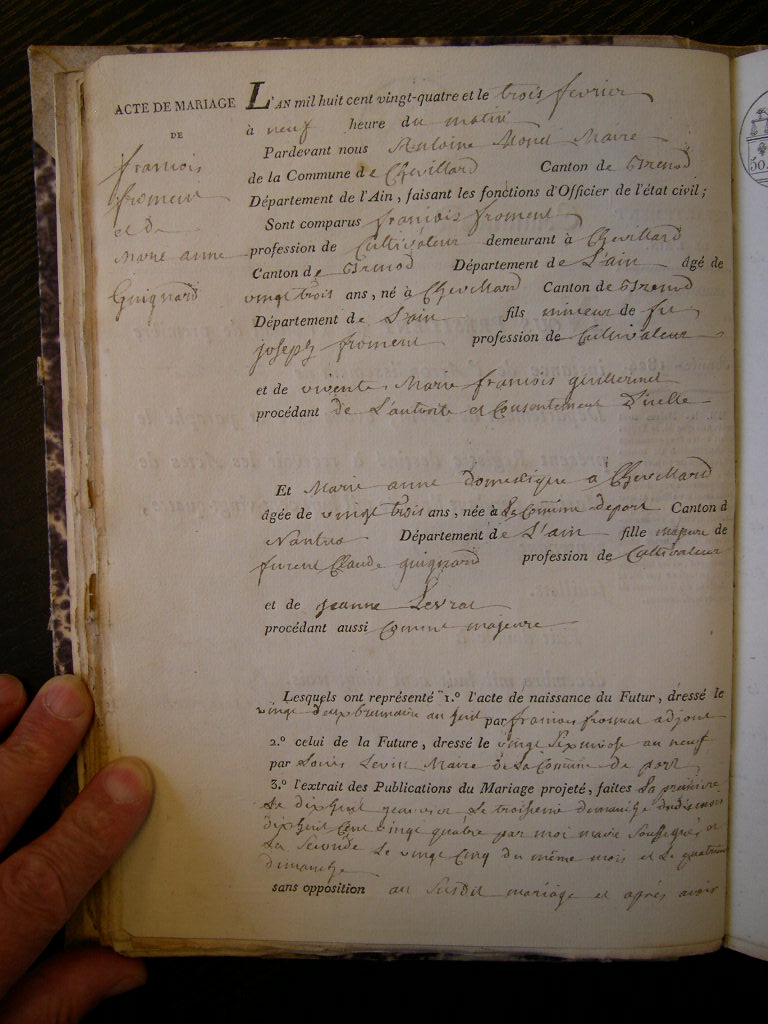 ACTE DE MARIAGE
DE
francois
froment
et de
marie anne
Guignard
L'AN mil huit cent vingt-quatre et le trois fevrier
à neuf heure du matin
Pardevant nous Antoine Monet Maire
de la Commune de Chevillard Canton de Brenod
Département de l'Ain, faisant les fonctions d'Officier de l'état civil;
Sont comparus francois froment
profession de Cultivateur demeurant à Chevillard
Canton de Brenod Département de L'ain âgé de
vingt trois ans, né à Chevillard Canton de Brenod
Département de L'ain fils mineur de fu
joseph froment profession de Cultivateur
et de vivente Marie francois guillermet
procédant de L'autorite et Consentement D'icelle
Et Marie anne domestique a Chevillard
âgée de vingt trois ans, née à La Commune deport Canton d
Nantua Département de L'ain fille majeure de
furent Claude guignard profession de Cultivateur
et de jeanne Levrat
procédant aussi Comme majeure
Lesquels ont représenté 1.º l'acte de naissance du Futur, dressé le
vingt deux brumaire an huit par francois froment adjoint
2.º celui de la Future, dressé le vingt six nivose an neuf
par Louis Levin Maire de La Commune de port
3.º l'extrait des Publications du Mariage projeté, faites La premiere
Le dix huit janvier Le troisieme dimanche dudit mois
dix huit Cent vingt quatre par moi maire Soussigné et
La Seconde Le vingt Cinq du même mois et Le quatrieme
dimanche
sans opposition au Susdit mariage et après avoir